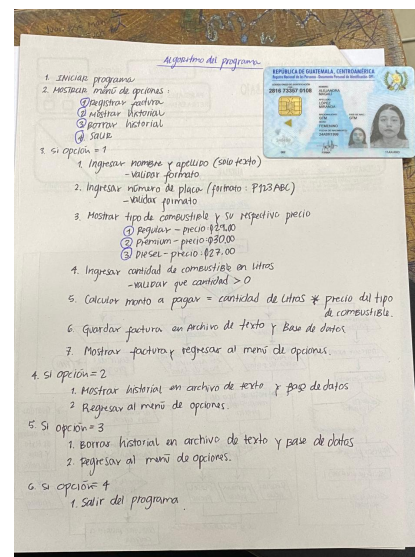 Algoritmo del programa
1. INICIAR programa
2. MOSTRAR menú de opciones:
① Registrar factura
② Mostrar historial
③ Borrar historial
④ SALIR
3. Si opción = 1
1. Ingresar nombre y apellido (solo texto)
-validar formato
2. Ingresar número de placa (formato: P123ABC)
-validar formato
3. Mostrar tipo de combustible y su respectivo precio
① Regular - precio:
② Premium - precio:
③ Diesel - precio:
4. Ingresar cantidad de combustible en litros
-validar que cantidad > 0
5. Calcular monto a pagar = cantidad de litros * precio del tipo
de combustible.
6. Guardar factura en Archivo de texto y Base de datos
7. Mostrar factura y regresar al menú de opciones.
4. Si opción = 2
1. Mostrar historial en archivo de texto y Base de datos
2 Regresar al menú de opciones.
5. Si opción = 3
1. Borrar historial en archivo de texto y Base de datos
2. Regresar al menú de opciones.
6. Si opción = 4
1. Salir del programa.
REPÚBLICA DE GUATEMALA, CENTROAMÉRICA
2816 73357 0108
ALEJANDRA
LÓPEZ
GTM